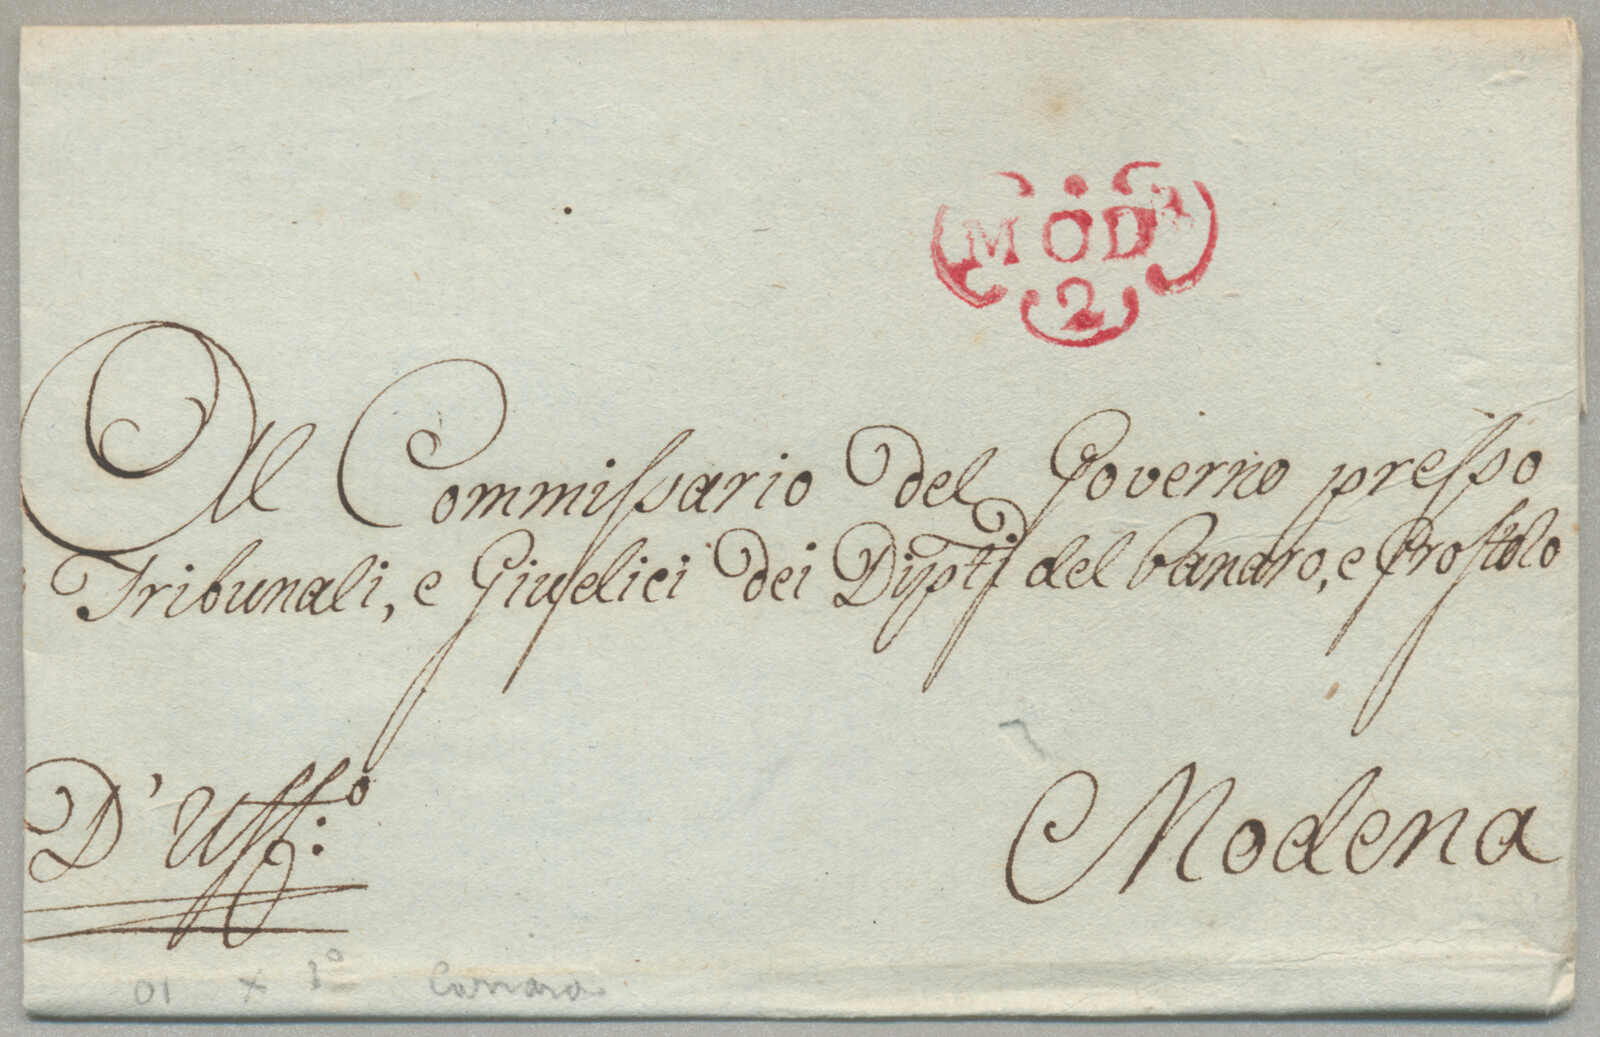 MOD.R
2
Al Commissario del Governo presso
Tribunali, e Giudici dei Dipti del Panaro, e Crostolo
D'Uff.o
Modena
01 x 1o Carrara